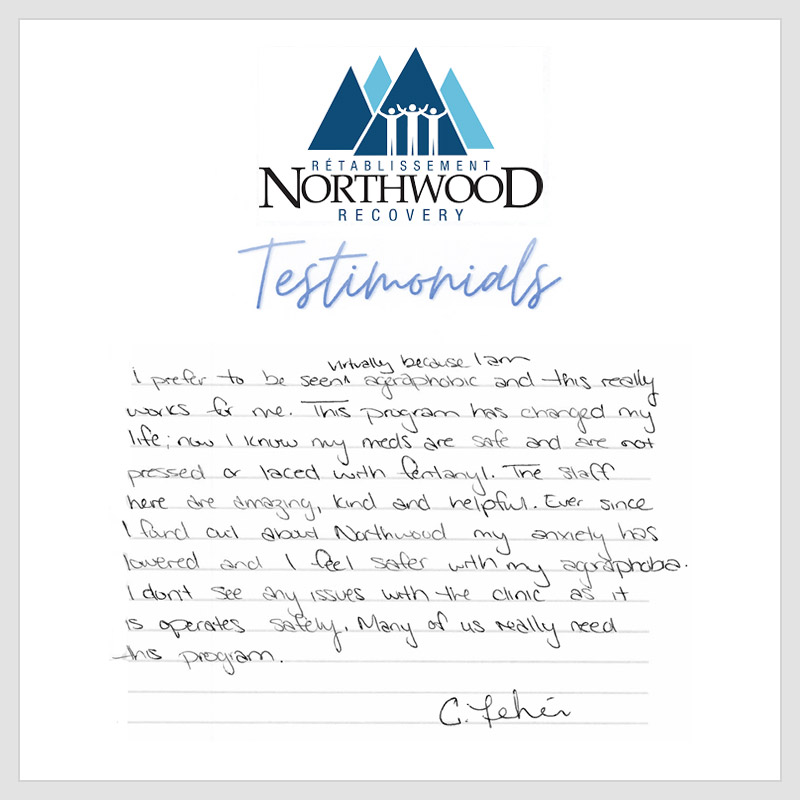 RÉTABLISSEMENT
NORTHWOOD
RECOVERY
Testimonials
virtually because I am
I prefer to be seen^ agoraphobic and this really
works for me. This program has changed my
life; now I know my meds are safe and are not
pressed or laced with fentanyl. The staff
here are amazing, kind and helpful. Ever since
I found out about Northwood my anxiety has
lowered and I feel safer with my agoraphobia.
I don't see any issues with the clinic as it
is operates safely. Many of us really need
this program.
C. Fehér